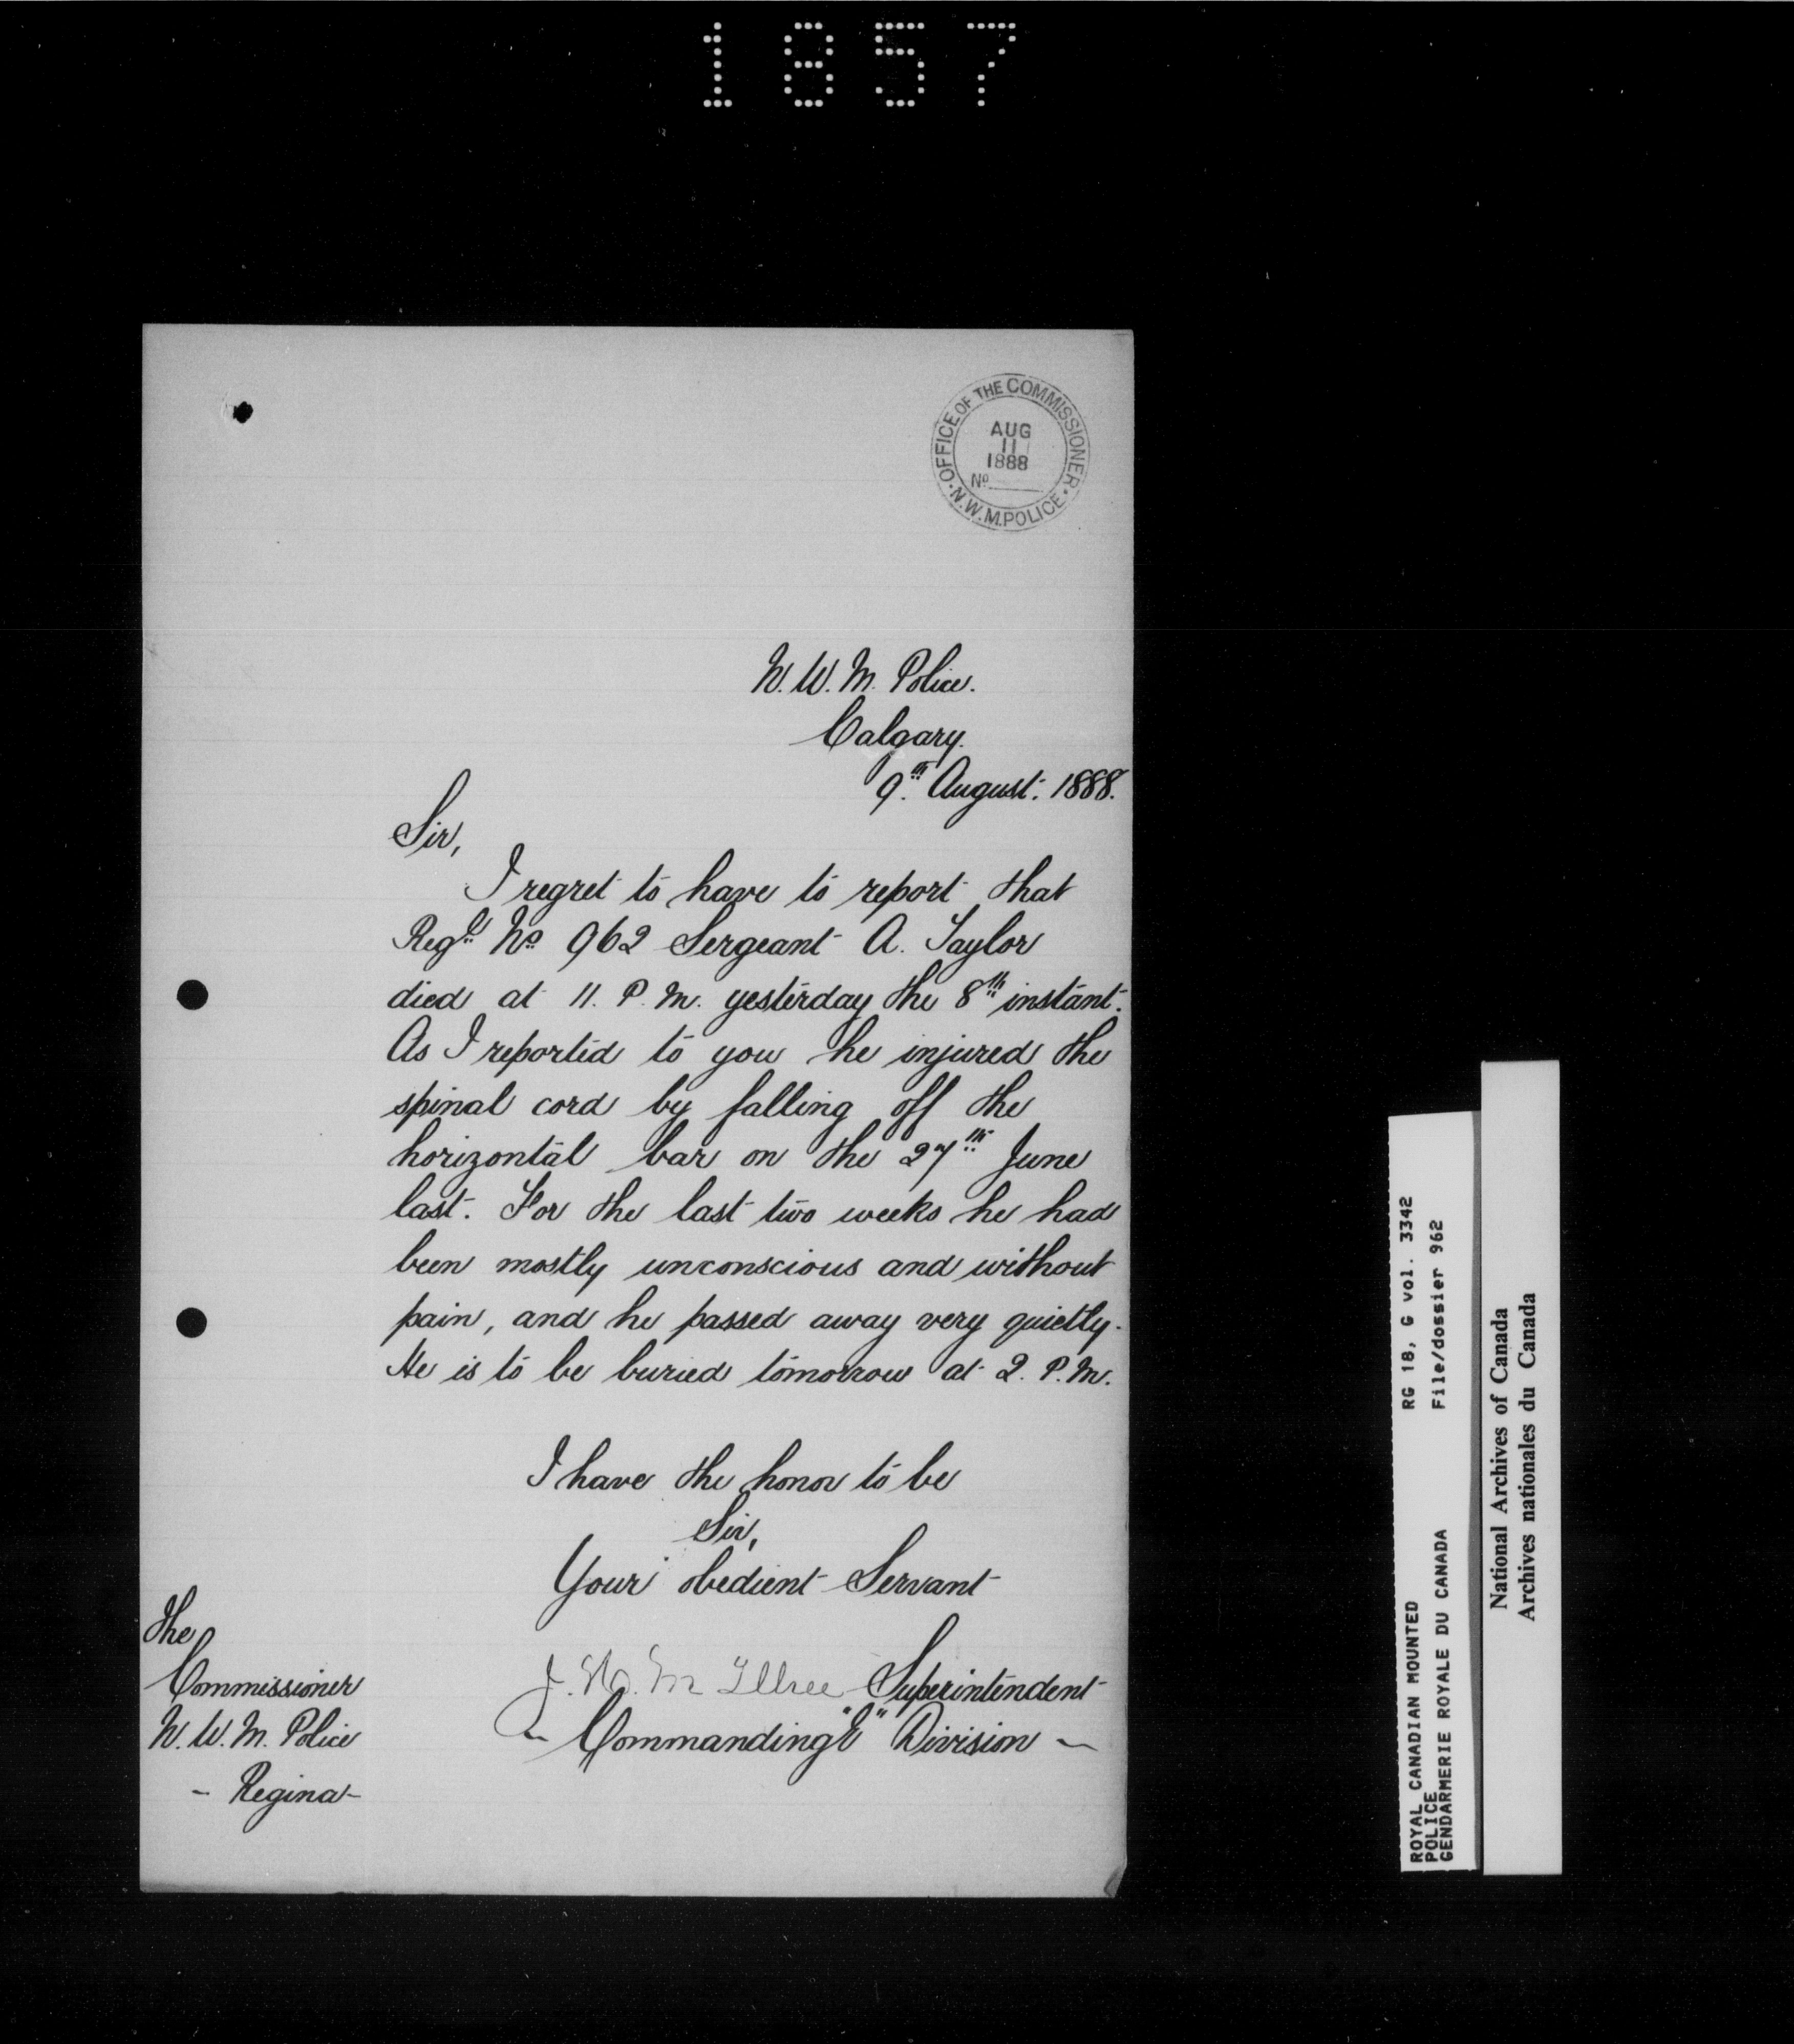 1857
OFFICE OF THE COMMISSIONER
AUG
11
1888
No
N.W.M.POLICE
N. W. M. Police.
Calgary.
9th August. 1888.
Sir,
I regret to have to report that
Regl No 962 Sergeant A. Taylor
died at 11. P. M. yesterday the 8th instant.
As I reported to you he injured the
spinal cord by falling off the
horizontal bar on the 27th June
last. For the last two weeks he had
been mostly unconscious and without
pain, and he passed away very quietly.
He is to be buried tomorrow at 2. P. M.
I have the honor to be
Sir,
Your obedient Servant
J. H. McIllree Superintendent
Commanding "E" Division
The
Commissioner
N. W. M. Police
- Regina -
ROYAL CANADIAN MOUNTED
POLICE
GENDARMERIE ROYALE DU CANADA
RG 18, G vol. 3342
File/dossier 962
National Archives of Canada
Archives nationales du Canada